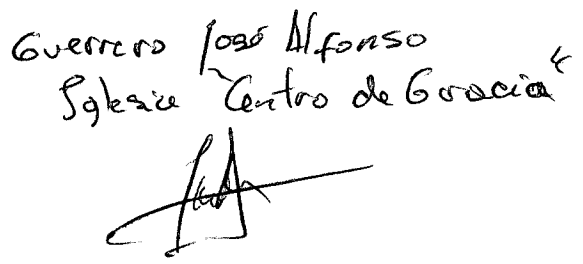 Guerrero José Alfonso
Iglesia "Centro de Gracia"